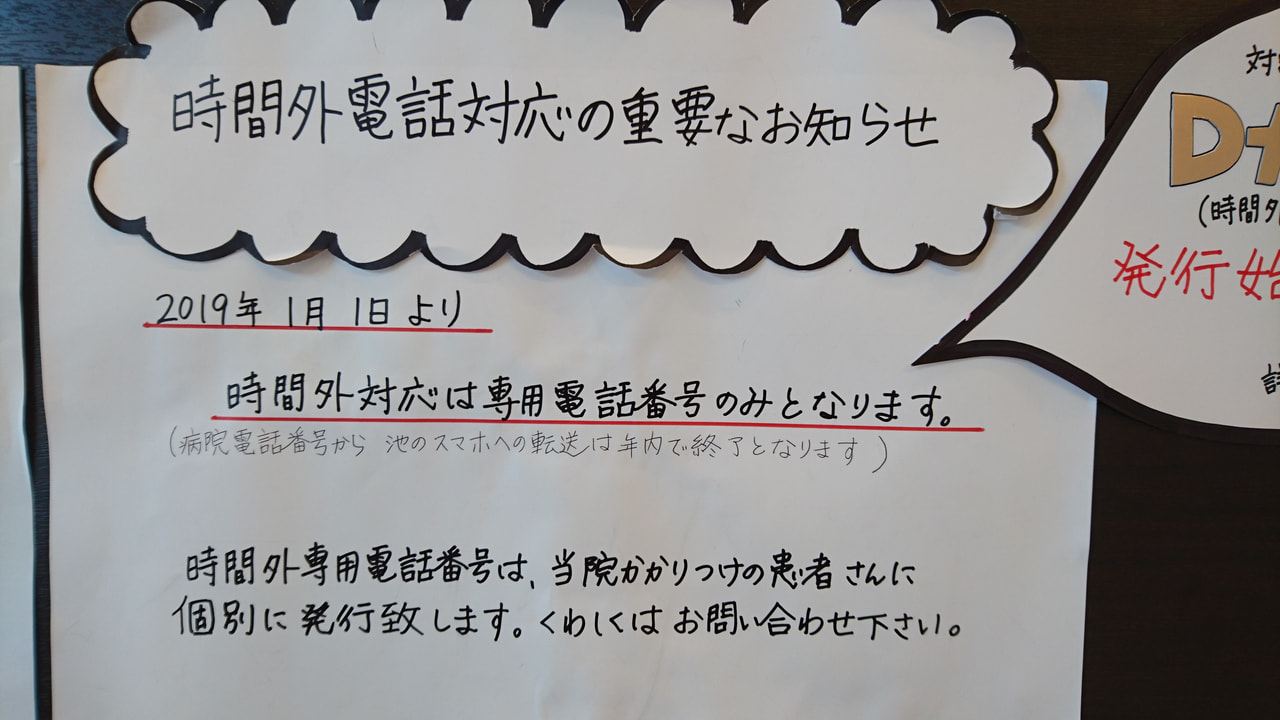 時間外電話対応の重要なお知らせ
2019年 1月 1日 より
時間外対応は専用電話番号のみとなります。
(病院電話番号から 池のスマホへの転送は年内で終了となります)
時間外専用電話番号は、当院かかりつけの患者さんに
個別に発行致します。くわしくはお問い合わせ下さい。
対
D
(時間外
発行始